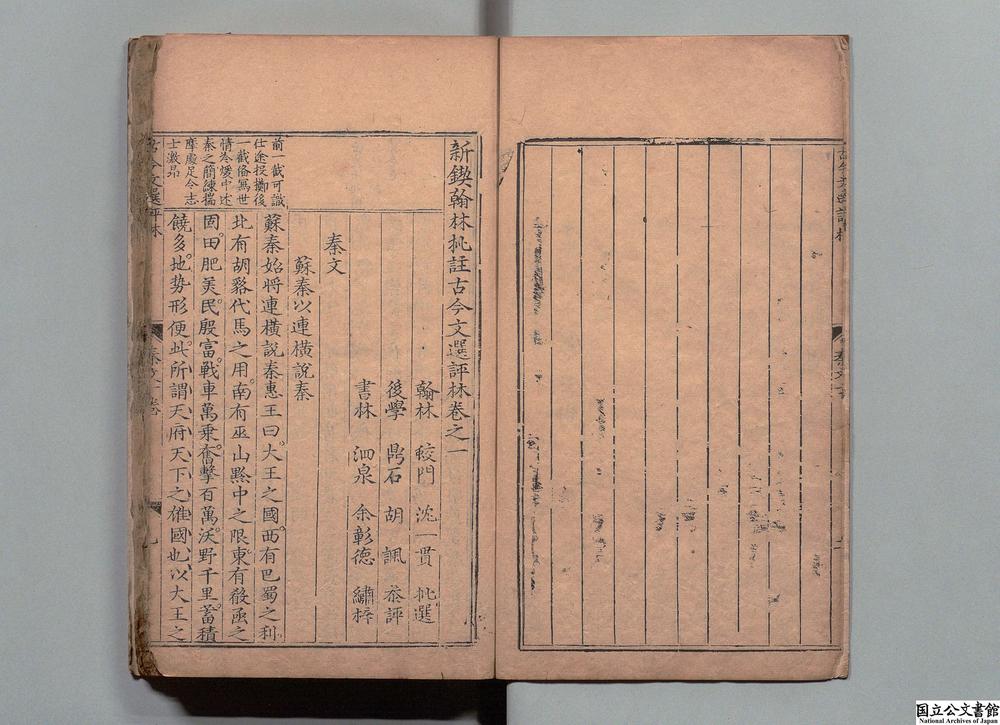 新鍥翰林批註古今文選評林卷之一
翰林 蛟門 沈一貫 批選
後學 鼎石 胡 諷 叅評
書林 泗泉 余彰德 繡梓
秦文
蘇秦以連橫說秦
蘇秦始將連橫說秦惠王曰大王之國西有巴蜀之利
北有胡貉代馬之用南有巫山黔中之限東有殽函之
固田肥美民殷富戰車萬乘奮擊百萬沃野千里蓄積
饒多地势形便此所謂天府天下之雄國也以大王之
前一截可識
仕途投擲後
一截俗寫世
情冷煖中述
秦之簡練揣
摩處足令志
士激昂
古今文選評林
國立公文書館
National Archives of Japan